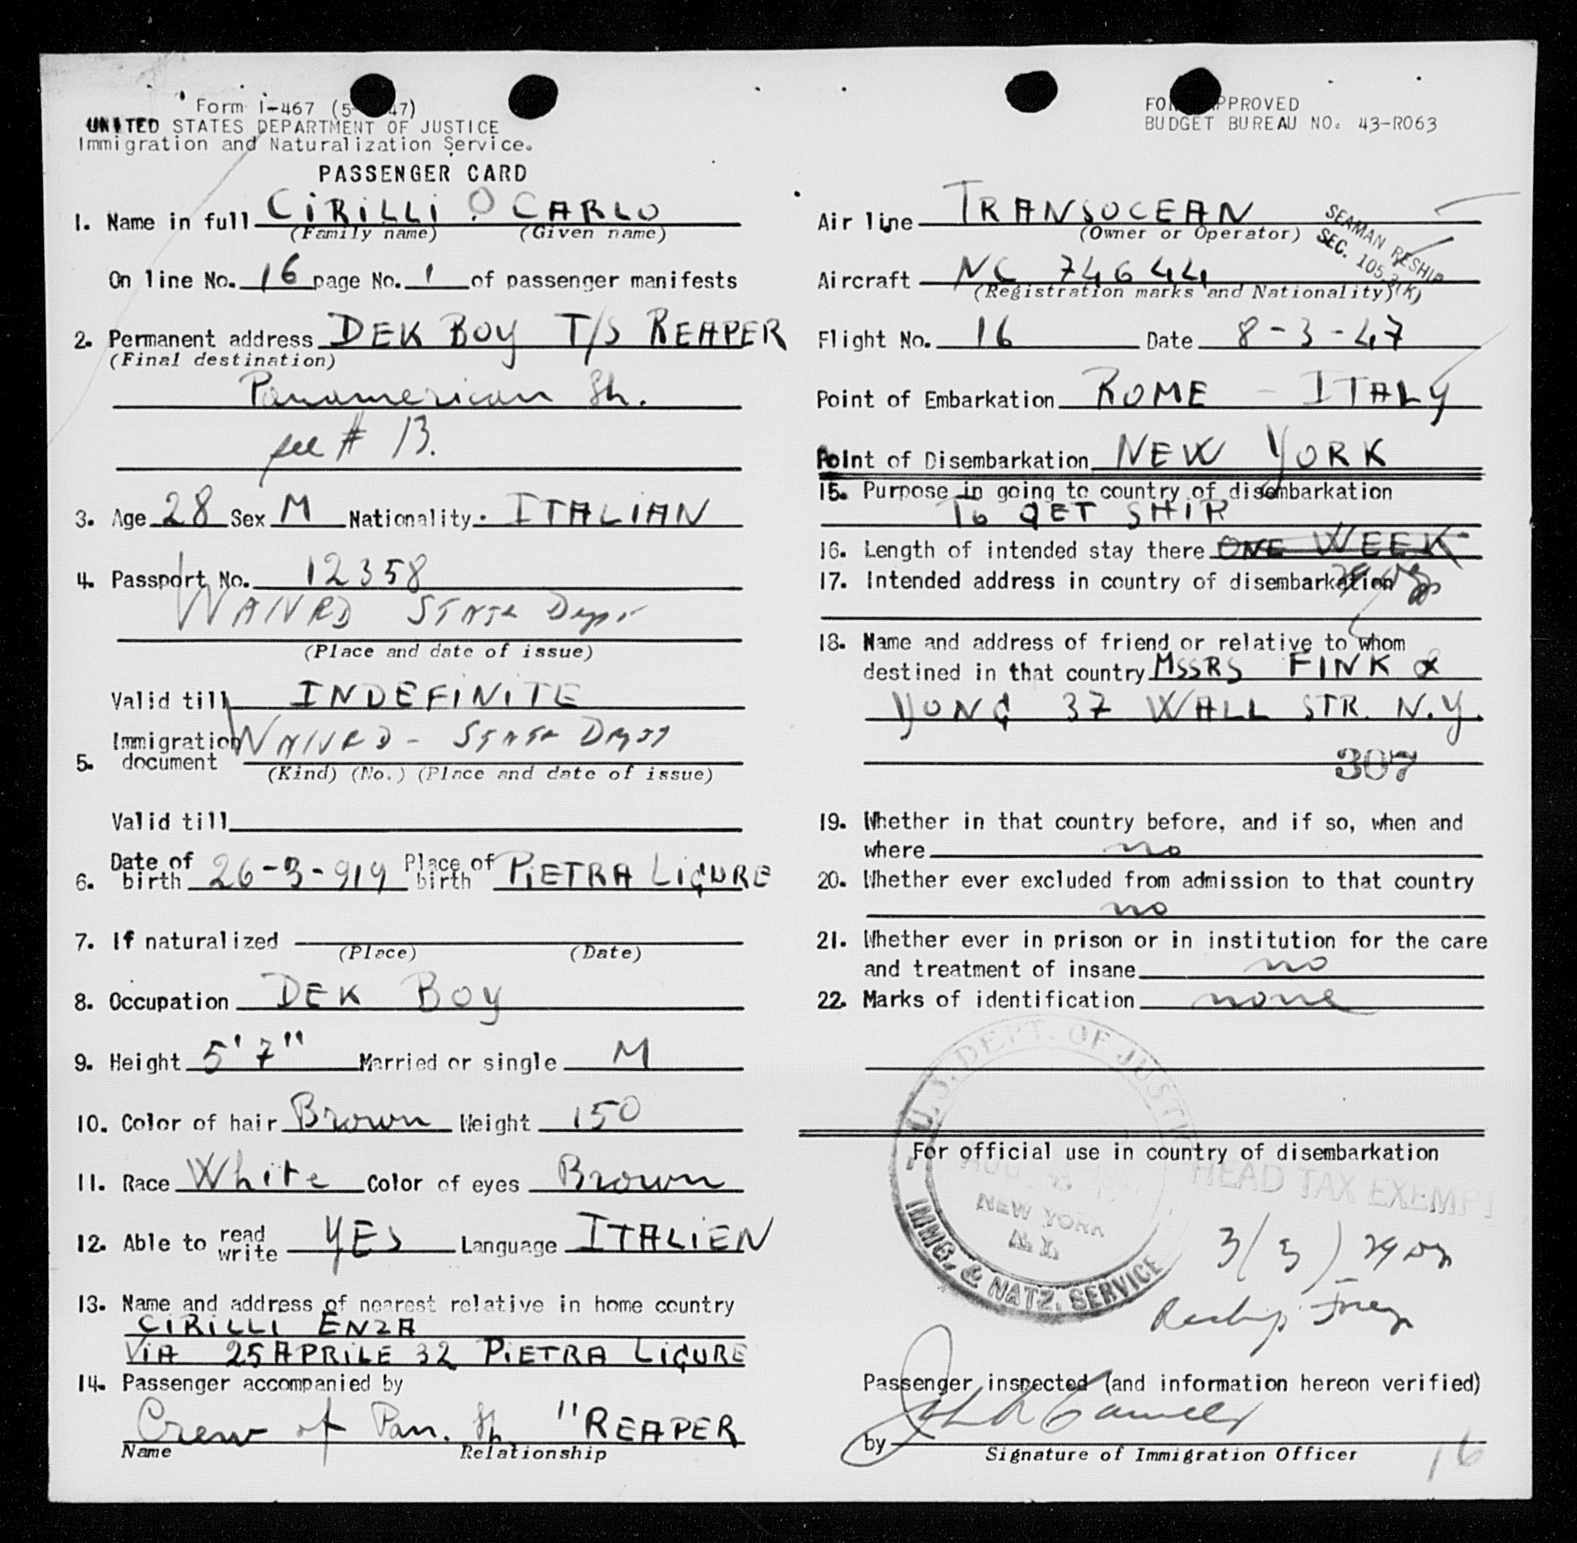 Form I-467 (5- 47)
UNITED STATES DEPARTMENT OF JUSTICE
Immigration and Naturalization Service.
PASSENGER CARD
1. Name in full CIRILLI CARLO
(Family name) (Given name)
On line No. 16 page No. 1 of passenger manifests
2. Permanent address DEK BOY T/S REAPER
(Final destination)
Panamerican Sh.
see # 13.
3. Age 28 Sex M Nationality. ITALIAN
4. Passport No. 12358
WAIVED STATE Dept
(Place and date of issue)
Valid till INDEFINITE
5. Immigration document WAIVED - STATE DEPT
(Kind) (No.) (Place and date of issue)
Valid till
6. Date of birth 26-3-919 Place of birth PIETRA LIGURE
7. If naturalized
(Place) (Date)
8. Occupation DEK BOY
9. Height 5'7" Married or single M
10. Color of hair Brown Weight 150
11. Race White Color of eyes Brown
12. Able to read write YES Language ITALIEN
13. Name and address of nearest relative in home country
CIRILLI ENZA
VIA 25 APRILE 32 PIETRA LIGURE
14. Passenger accompanied by
Crew of Pan. Sh. "REAPER
Name Relationship
FORM APPROVED
BUDGET BUREAU NO. 43-R063
Air line TRANSOCEAN
(Owner or Operator)
SEAMAN RESHIP
SEC. 105.3(K)
Aircraft NC 74644
(Registration marks and Nationality)
Flight No. 16 Date 8-3-47
Point of Embarkation ROME - ITALY
Point of Disembarkation NEW YORK
15. Purpose in going to country of disembarkation
TO GET SHIP
16. Length of intended stay there ONE WEEK
17. Intended address in country of disembarkation
29 dys
18. Name and address of friend or relative to whom
destined in that country MSSRS FINK &
YONG 37 WALL STR. N.Y.
307
19. Whether in that country before, and if so, when and
where no
20. Whether ever excluded from admission to that country
no
21. Whether ever in prison or in institution for the care
and treatment of insane no
22. Marks of identification none
U.S. DEPT. OF JUSTICE
For official use in country of disembarkation
HEAD TAX EXEMPT
NEW YORK
N.Y.
IMMG. & NATZ. SERVICE
3/(3) 29 dys
Reship Foreign
Passenger inspected (and information hereon verified)
by
Signature of Immigration Officer
16